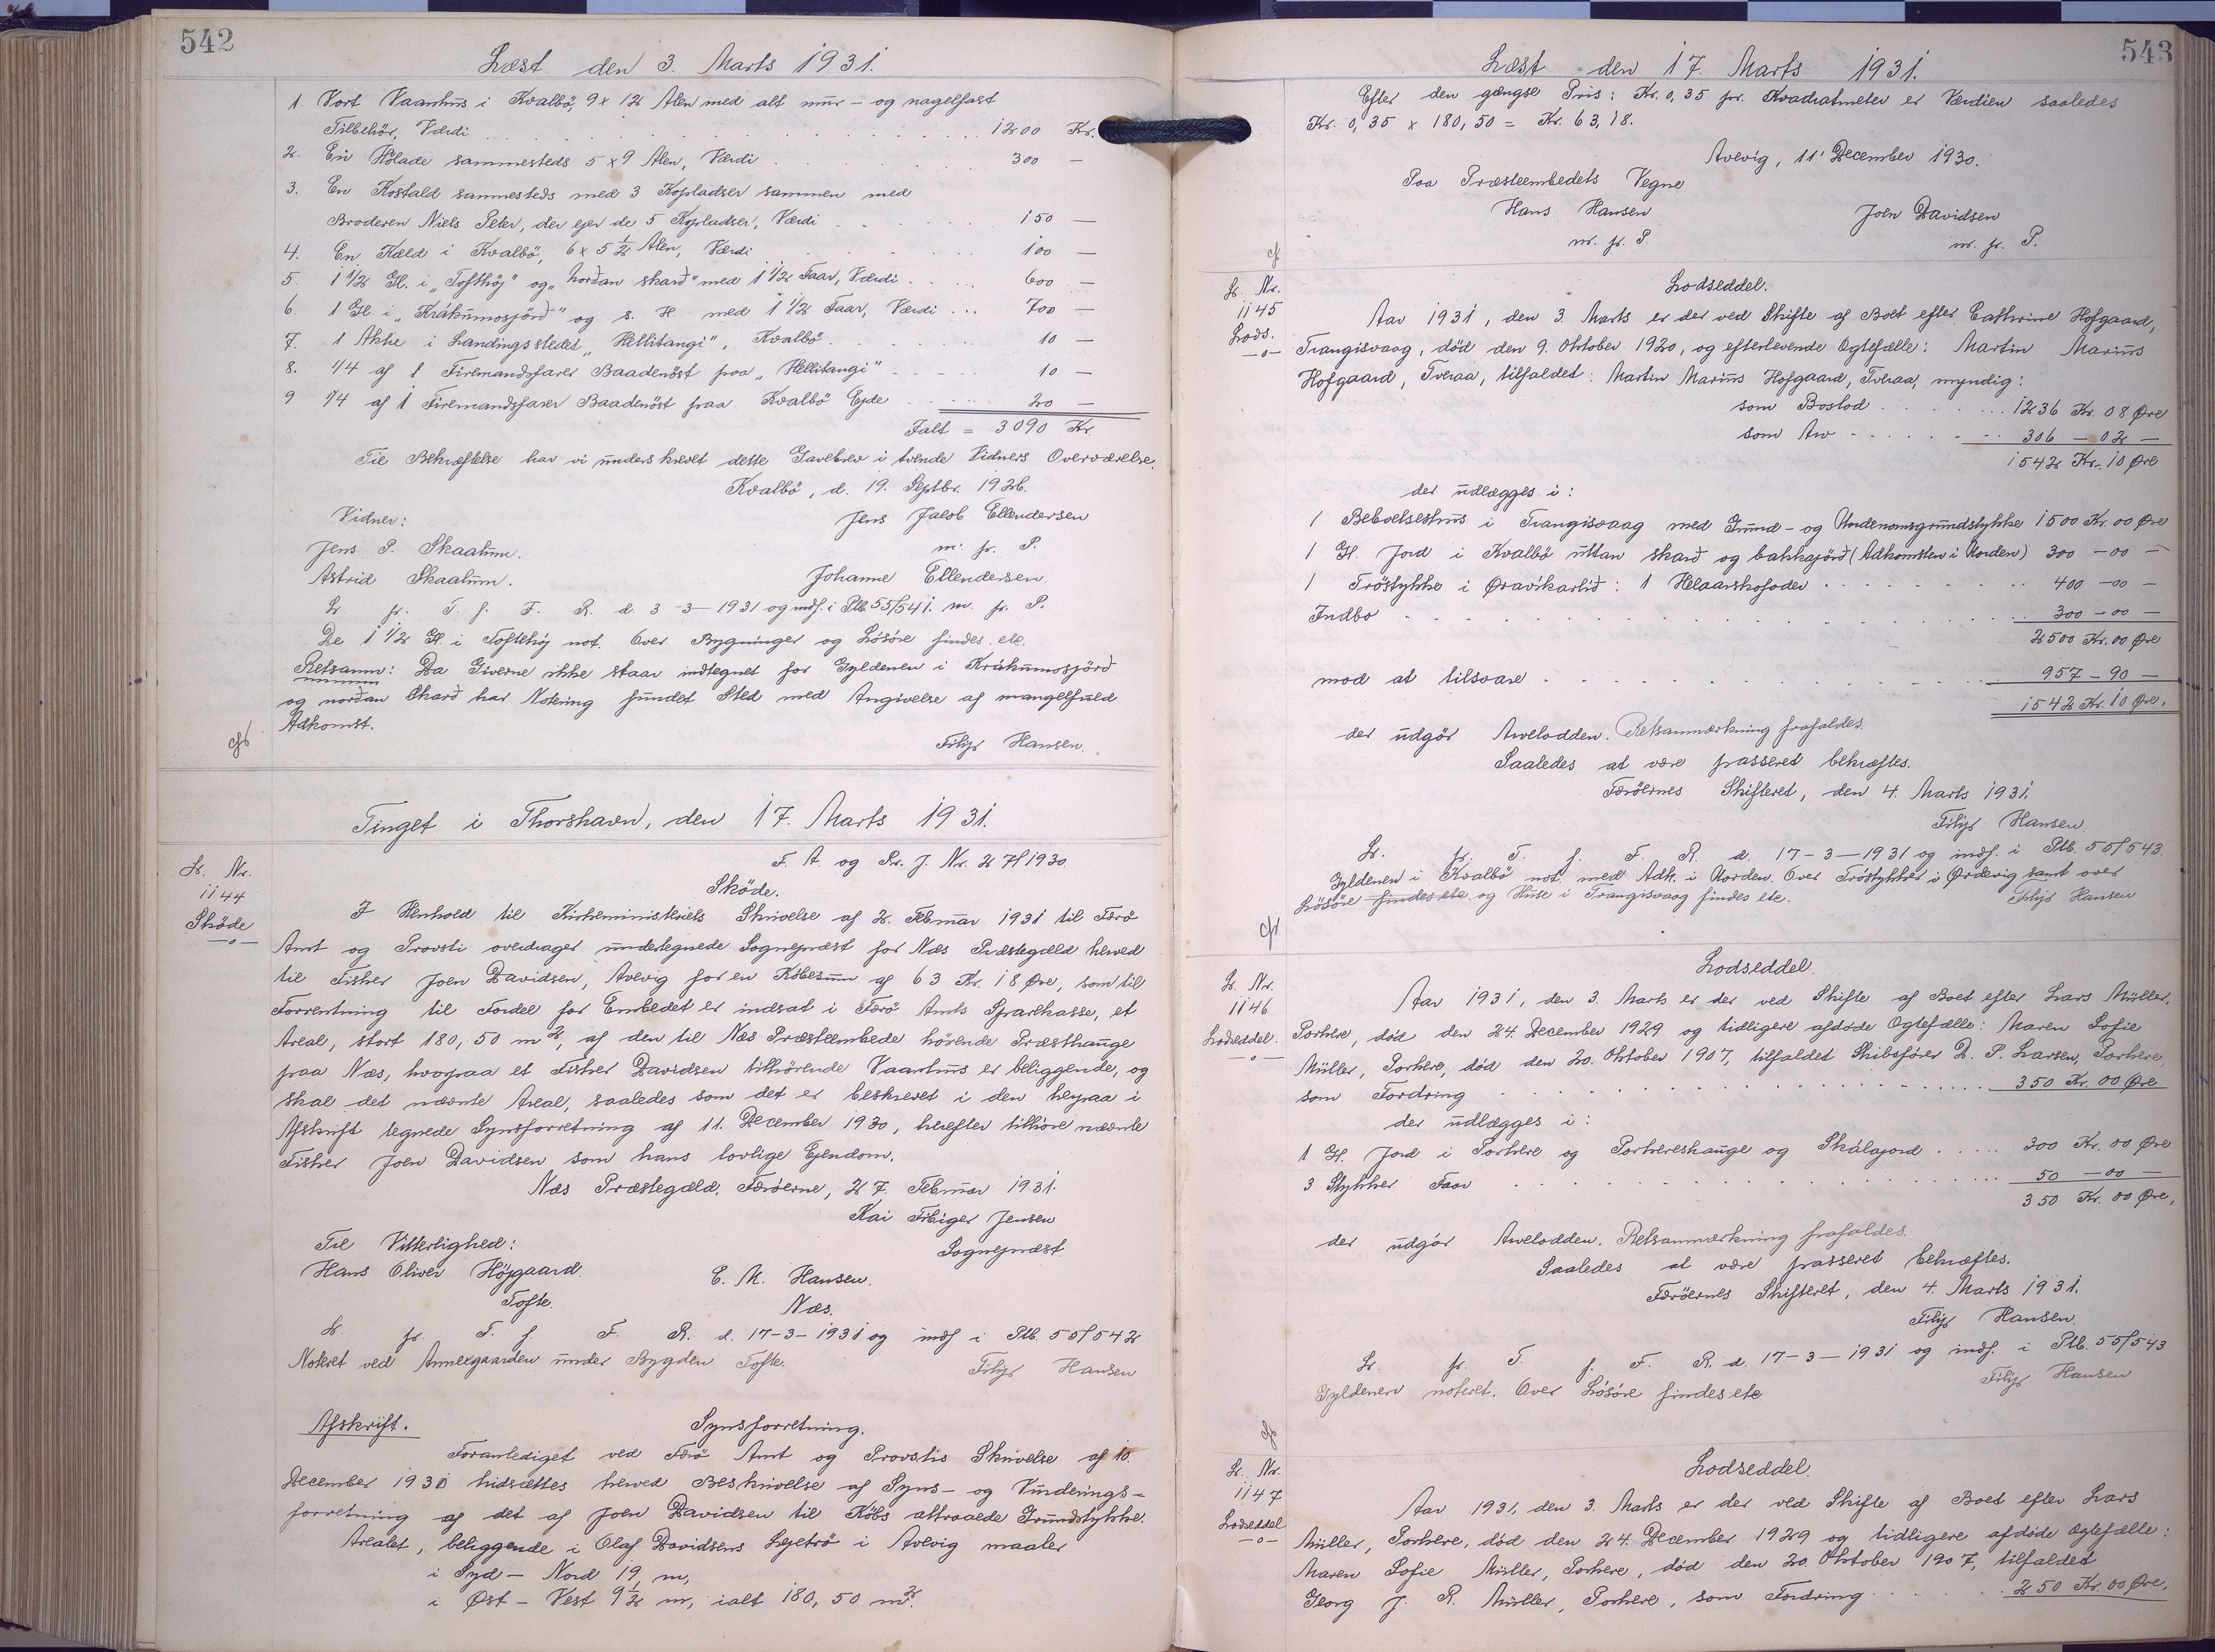 542
Læst den 3. Marts 1931.
1. Vort Vaanhus i Kvalbö, 9 x 12 Alen med alt mur- og nagelfast
Tilbehör, Værdi . . . 1200 Kr.
2. En Hølade sammesteds 5 x 9 Alen, Værdi . . . 300 —
3. En Kostald sammesteds med 3 Kopladser sammen med
Broderen Niels Peter, der ejer de 5 Kopladser, Værdi . . . 150 —
4. En Kæld i Kvalbö, 6 x 5 1/2 Alen, Værdi . . . 100 —
5. 1 1/2 Gl. i „Tofthöj" og „norðan skarð" med 1 1/2 Faar, Værdi . . . 600 —
6. 1 Gl. i „Krákumosjörð" og s. H. med 1 1/2 Faar, Værdi . . . 700 —
7. 1 Akke i Landingsstedet „Hellitangi", Kvalbö . . . 10 —
8. 1/4 af 1 Firemandsfarer Baadenöst paa „Hellitangi" . . . 10 —
9 1/4 af 1 Firemandsfarer Baadenöst paa Kvalbö Ejde . . . 20 —
Ialt = 3090 Kr.
Til Bekræftelse har vi underskrevet dette Gavebrev i tvende Vidners Overværelse.
Kvalbö, d. 19. Septbr. 1926.
Vidner: Jens Jacob Ellendersen
Jens P. Skaalum. m. p. P.
Astrid Skaalum. Johanne Ellendersen
Lr. p. T. f. F. R. d. 3-3-1931 og indf. i Ptb. 55/541. m. p. P.
De 1 1/2 Gl. i Tofthöj not. Over Bygninger og Lösöre findes ete.
Retsanm: Da Giverne ikke staar indtegnet for Gyldenen i Krákumosjörð
og norðan Skarð har Notering fundet Sted med Angivelse af mangelfuld
Adkomst.
Filip Hansen.
Tinget i Thorshavn, den 17. Marts 1931.
F. A. og Pr. J. Nr. 27/1930
Lr. Nr.
1144
Sköde
—o—
Sköde.
I Henhold til Kirkeministeriets Skrivelse af 2. Februar 1931 til Færö
Amt og Provsti overdrager undertegnede Sognepræst for Næs Præstegæld herved
til Fisker Joen Davidsen, Avevig for en Købesum af 63 Kr. 18 Øre, som til
Forrentning til Fordel for Embedet er indsat i Færö Amts Sparekasse, et
Areal, stort 180,50 m2, af den til Næs Præsteembede hörende Præsthauge
paa Næs, hvorpaa et Fisker Davidsen tilhørende Vaanhus er beliggende, og
skal det nævnte Areal, saaledes som det er beskrevet i den herpaa i
Afskrift tegnede Synsforretning af 11. December 1930, herefter tilhöre nævnte
Fisker Joen Davidsen som hans lovlige Ejendom.
Næs Præstegæld, Færöerne, 27. Februar 1931.
Kai Fibiger Jensen
Til Vitterlighed: Sognepræst
Hans Oliver Höjgaard. E. M. Hansen.
Tofte. Næs.
Lr. p. T. f. F. R. d. 17-3-1931 og indf i Ptb. 55/542
Noteret ved Annexgaarden under Bygden Tofte. Filip Hansen
Afskrift. Synsforretning.
Foranlediget ved Færö Amt og Provstis Skrivelse af 10.
December 1930 hidsættes herved Beskrivelse af Syns- og Vurderings-
forretning af det af Joen Davidsen til Købs attraaede Grundstykke.
Arealet, beliggende i Olaf Davidsens Lejetrö i Avevig maaler
i Syd - Nord 19 m,
i Øst - Vest 9 1/2 m, ialt 180,50 m2.
543
Læst den 17. Marts 1931.
Efter den gængse Pris: Kr. 0,35 pr. Kvadratmeter er Værdien saaledes
Kr. 0,35 x 180,50 = Kr. 63,18.
Avevig, 11' December 1930.
Paa Præsteembedets Vegne
Hans Hansen Joen Davidsen
m. p. P. m. p. P.
Lr. Nr.
1145
Lods.
—o—
Lodseddel.
Aar 1931, den 3. Marts er der ved Skifte af Boet efter Cathrine Hofgaard,
Trangisvaag, död den 9. Oktober 1920, og efterlevende Ægtefælle: Martin Marius
Hofgaard, Tveraa, tilfaldet: Martin Marius Hofgaard, Tveraa, myndig:
som Boslod . . . 1236 Kr. 08 Øre
som Arv . . . 306 — 02 —
1542 Kr. 10 Øre
der udlægges i:
1 Beboelseshus i Trangisvaag med Grund- og Undenomsgrundstykke 1500 Kr. 00 Øre
1 Gl. Jord i Kvalbö uttan skarð og bakkajörð (Adkomsten i Orden) 300 — 00 —
1 Tröstykke i Øravíkarlið: 1 Helaarskofoder . . . 400 — 00 —
Indbo . . . 300 — 00 —
2500 Kr. 00 Øre
mod at tilsvare . . . 957 — 90 —
1542 Kr. 10 Øre,
der udgör Arvelodden. Retsanmærkning frafaldes.
Saaledes at være passeret bekræftes.
Færöernes Skifteret, den 4. Marts 1931.
Filip Hansen
Lr. p. T. f. F. R. d. 17-3-1931 og indf. i Ptb. 55/543.
Gyldenen i Kvalbö not. med Adk. i Orden. Over Tröstykket i Ørdevig samt over
Lösöre findes ete. og Huse i Trangisvaag findes ete. Filip Hansen
Lr. Nr.
1146
Lodseddel.
—o—
Lodseddel.
Aar 1931, den 3. Marts er der ved Skifte af Boet efter Lars Müller,
Porkere, död den 24. December 1929 og tidligere afdöde Ægtefælle: Maren Sofie
Müller, Porkere, död den 20. Oktober 1907, tilfaldet Skibsfører D. P. Larsen, Porkere,
som Fordring . . . 350 Kr. 00 Øre
der udlægges i:
1 Gl. Jord i Porkere og Porkereshauge og Skálajord . . . 300 Kr. 00 Øre
3 Stykker Faar . . . 50 — 00 —
350 Kr. 00 Øre,
der udgör Arvelodden. Retsanmærkning frafaldes.
Saaledes at være passeret bekræftes.
Færöernes Skifteret, den 4. Marts 1931.
Filip Hansen.
Lr. p. T. f. F. R. d. 17-3-1931 og indf. i Ptb. 55/543
Gyldenen noteret. Over Lösöre findes ete Filip Hansen
Lr. Nr.
1147
Lodseddel
—o—
Lodseddel.
Aar 1931, den 3. Marts er der ved Skifte af Boet efter Lars
Müller, Porkere, död den 24. December 1929 og tidligere afdöde Ægtefælle:
Maren Sofie Müller, Porkere, död den 20. Oktober 1907, tilfaldet
Georg J. R. Müller, Porkere, som Fordring . . . 250 Kr. 00 Øre,